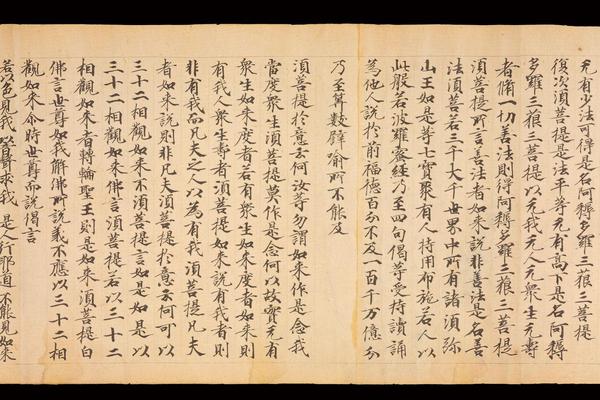 无有少法可得是名阿耨多羅三藐三菩提
復次須菩提是法平等无有高下是名阿耨
多羅三藐三菩提以无我无人无衆生无壽
者脩一切善法則得阿耨多羅三藐三菩提
須菩提所言善法者如來說非善法是名善
法須菩若三千大千世界中所有諸須弥
山王如是等七寶聚有人持用布施若人以
此般若波羅蜜經乃至四句偈等受持讀誦
為他人說於前福德百分不及一百千万億分
乃至筭數譬喻所不能及
須菩提於意云何汝等勿謂如來作是念我
當度衆生須菩提莫作是念何以故實无有
衆生如來度者若有衆生如來度者如來則
有我人衆生壽者須菩提如來說有我者則
非有我而凡夫之人以為有我須菩提凡夫
者如來說則非凡夫須菩提於意云何可以
三十二相觀如來不須菩提言如是如是以
三十二相觀如來佛言須菩提若以三十二
相觀如來者轉輪聖王則是如來須菩提白
佛言世尊如我解佛所說義不應以三十二相
觀如來尒時世尊而說偈言
若以色見我以音聲求我是人行邪道不能見如來